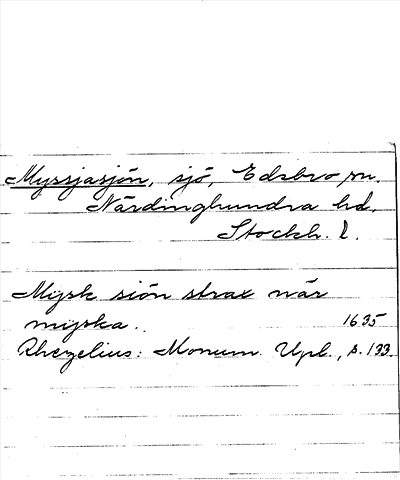 Myssjasjön, sjö, Edsbro sn.
Närdinghundra hd.
Stockh. l.
Mysk siön strax när
myska.. 1635
Rhezelius: Monum. Upl., s. 133.